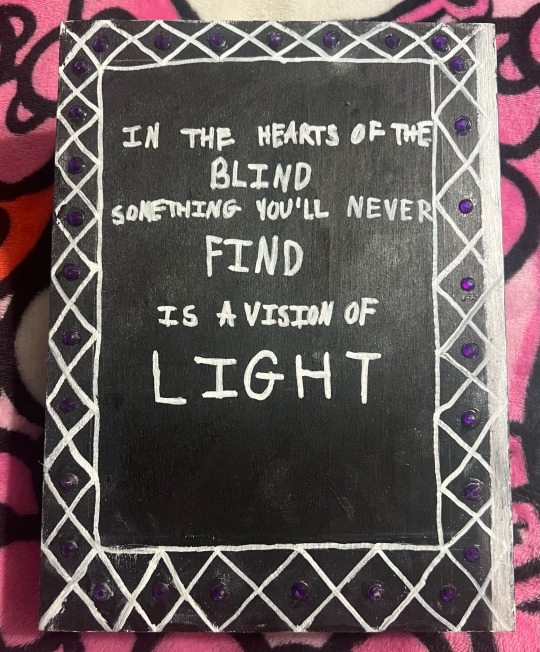 IN THE HEARTS OF THE
BLIND
SOMETHING YOU'LL NEVER
FIND
IS A VISION OF
LIGHT